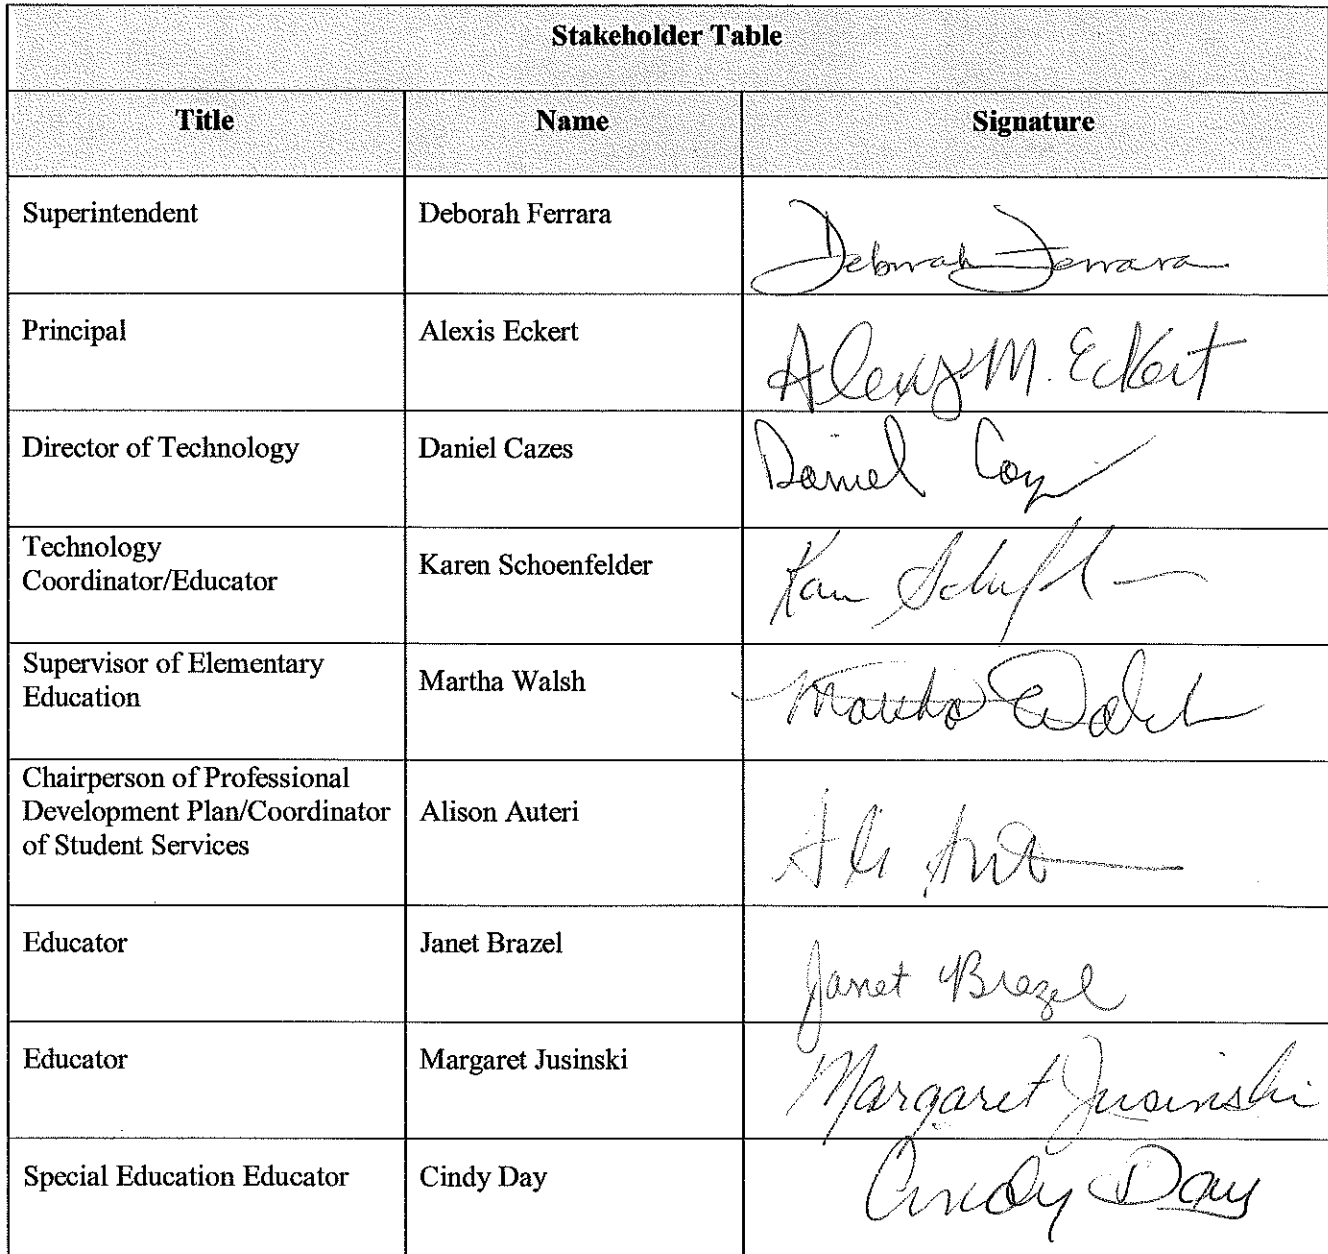 Stakeholder Table
Title Name Signature
Superintendent Deborah Ferrara Deborah Ferrara
Principal Alexis Eckert Alexis M. Eckert
Director of Technology Daniel Cazes Daniel
Technology
Coordinator/Educator Karen Schoenfelder
Supervisor of Elementary
Education Martha Walsh Martha Walsh
Chairperson of Professional
Development Plan/Coordinator
of Student Services Alison Auteri
Educator Janet Brazel Janet Brazel
Educator Margaret Jusinski Margaret Jusinski
Special Education Educator Cindy Day Cindy Day